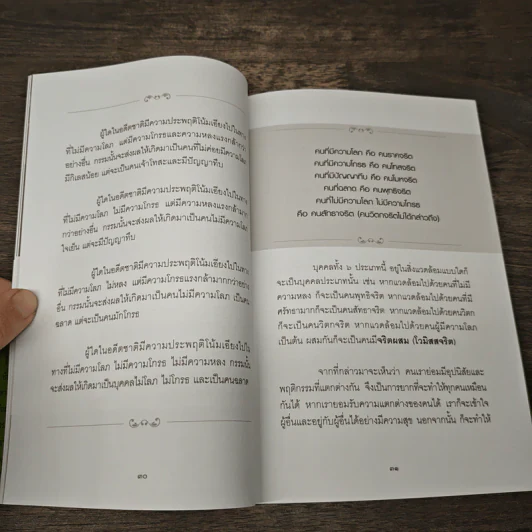 ผู้ใดในอดีตชาติมีความประพฤติโน้มเอียงไปในทาง
ที่ไม่มีความโลภ แต่มีความโกรธและความหลงแรงกล้ามากกว่า
อย่างอื่น กรรมนั้นจะส่งผลให้เกิดมาเป็นคนที่ไม่ค่อยมีความโลภ
มีกิเลสน้อย แต่จะเป็นคนเจ้าโทสะและมีปัญญาทึบ
ผู้ใดในอดีตชาติมีความประพฤติโน้มเอียงไปในทาง
ที่ไม่มีความโลภ ไม่มีความโกรธ แต่มีความหลงแรงกล้ามาก
กว่าอย่างอื่น กรรมนั้นจะส่งผลให้เกิดมาเป็นคนไม่มีความโลภ
ใจเย็น แต่จะมีปัญญาทึบ
ผู้ใดในอดีตชาติมีความประพฤติโน้มเอียงไปในทาง
ที่ไม่มีความโลภ ไม่หลง แต่มีความโกรธแรงกล้ามากกว่าอย่าง
อื่น กรรมนั้นจะส่งผลให้เกิดมาเป็นคนไม่มีความโลภ เป็นคน
ฉลาด แต่จะเป็นคนมักโกรธ
ผู้ใดในอดีตชาติมีความประพฤติโน้มเอียงไปใน
ทางที่ไม่มีความโลภ ไม่มีความโกรธ ไม่มีความหลง กรรมนั้น
จะส่งผลให้เกิดมาเป็นบุคคลไม่โลภ ไม่โกรธ และเป็นคนฉลาด
๓๐
คนที่มีความโลภ คือ คนราคจริต
คนที่มีความโกรธ คือ คนโทสจริต
คนที่มีปัญญาทึบ คือ คนโมหจริต
คนที่ฉลาด คือ คนพุทธิจริต
คนที่ไม่มีความโลภ ไม่มีความโกรธ
คือ คนสัทธาจริต (คนวิตกจริตไม่ได้กล่าวถึง)
บุคคลทั้ง ๖ ประเภทนี้ อยู่ในสิ่งแวดล้อมแบบใดก็
จะเป็นบุคคลประเภทนั้น เช่น หากแวดล้อมไปด้วยคนที่ไม่มี
ความหลง ก็จะเป็นคนพุทธิจริต หากแวดล้อมไปด้วยคนที่มี
ศรัทธามากก็จะเป็นคนสัทธาจริต หากแวดล้อมไปด้วยคนวิตก
ก็จะเป็นคนวิตกจริต หากแวดล้อมไปด้วยคนผู้มีความโลภ
เป็นต้น ผสมกันก็จะเป็นคนมีจริตผสม (โวมิสสจริต)
จากที่กล่าวมาจะเห็นว่า คนเราย่อมมีอุปนิสัยและ
พฤติกรรมที่แตกต่างกัน จึงเป็นการยากที่จะทำให้ทุกคนเหมือน
กันได้ หากเรายอมรับความแตกต่างของคนได้ เราก็จะเข้าใจ
ผู้อื่นและอยู่กับผู้อื่นได้อย่างมีความสุข นอกจากนั้น ก็จะทำให้
๓๑